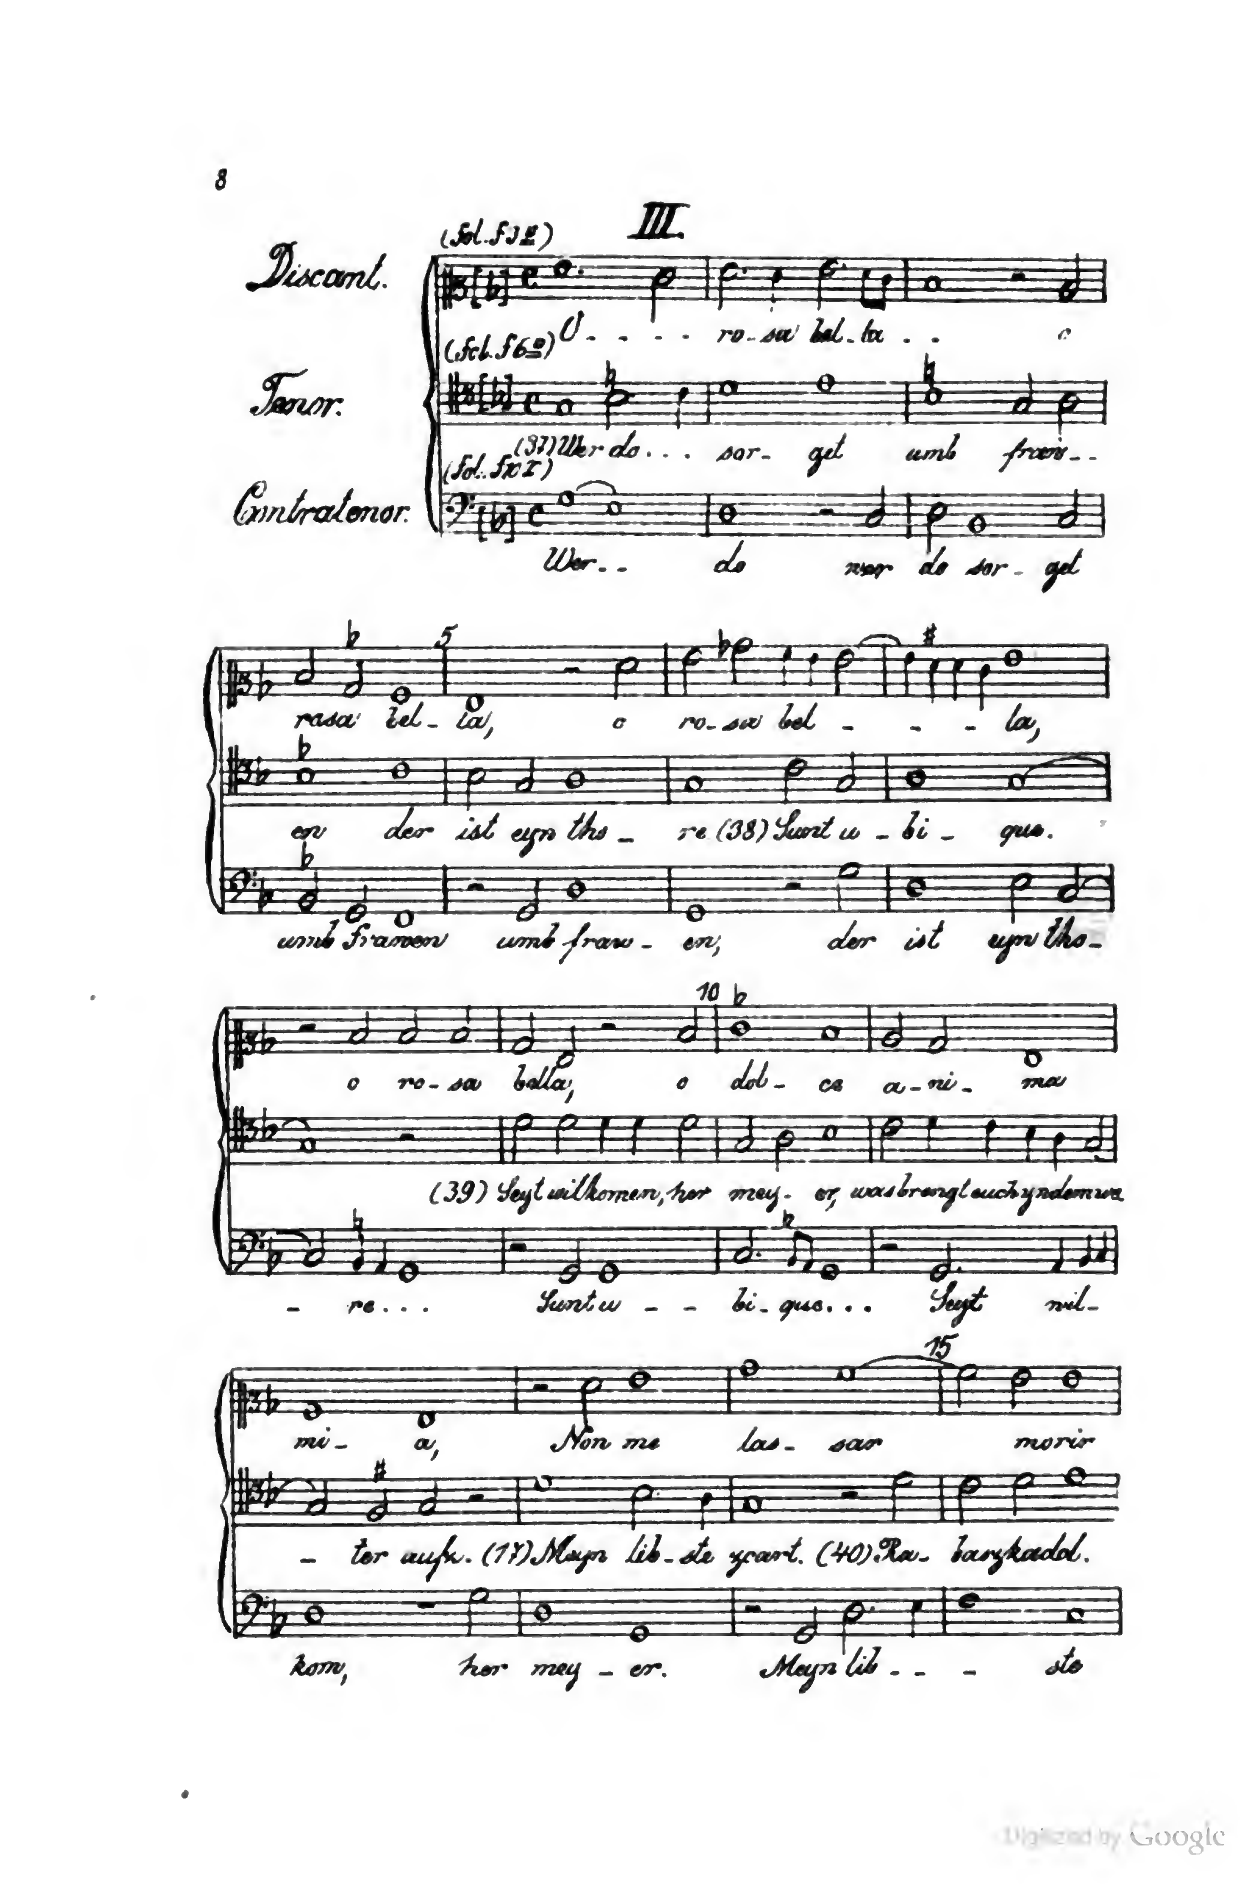 8
III.
Discant.
O - - - - ro-sa bel-ta - - o
Tenor.
(37) Wer do . . . sor- get umb frau- -
Contratenor.
Wer - - do wer do sor - get
5
rosa bel - la, o ro-sa bel - - - la,
en der ist eyn tho - re (38) Sunt u - bi - que.
umb frawen umb fraw - en, der ist eyn tho-
10
o ro-sa bella, o dol- ce a-ni- ma
(39) Seyt wilkomen, her mey- er, was brengt euch yn dem we
- re . . . Sunt u - - bi-que . . . Seyt wil-
15
mi- a, Non me las- sar morir
- ter aufz. (17) Meyn lib-ste zcart. (40) Ra-
kom, her mey - er. Meyn lib - - - ste
Digitized by Google